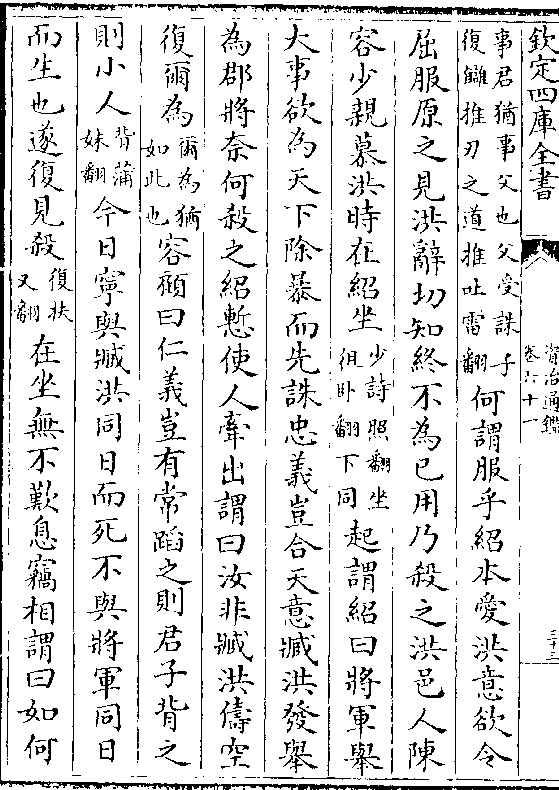 欽定四庫全書
資治通鑑
卷六十一
三十三
事君猶事父也父受誅子
復讎推刃之道推吐雷翻
何謂服乎紹本愛洪意欲令
屈服原之見洪辭切知終不為已用乃殺之洪邑人陳
容少親慕洪時在紹坐
少詩照翻坐
徂卧翻下同
起謂紹曰將軍舉
大事欲為天下除暴而先誅忠義豈合天意臧洪發舉
為郡將奈何殺之紹慙使人牽出謂曰汝非臧洪儔空
復爾為
爾為猶
如此也
容顧曰仁義豈有常蹈之則君子背之
則小人
背蒲
妹翻
今日寧與臧洪同日而死不與將軍同日
而生也遂復見殺
復扶
又翻
在坐無不歎息竊相謂曰如何